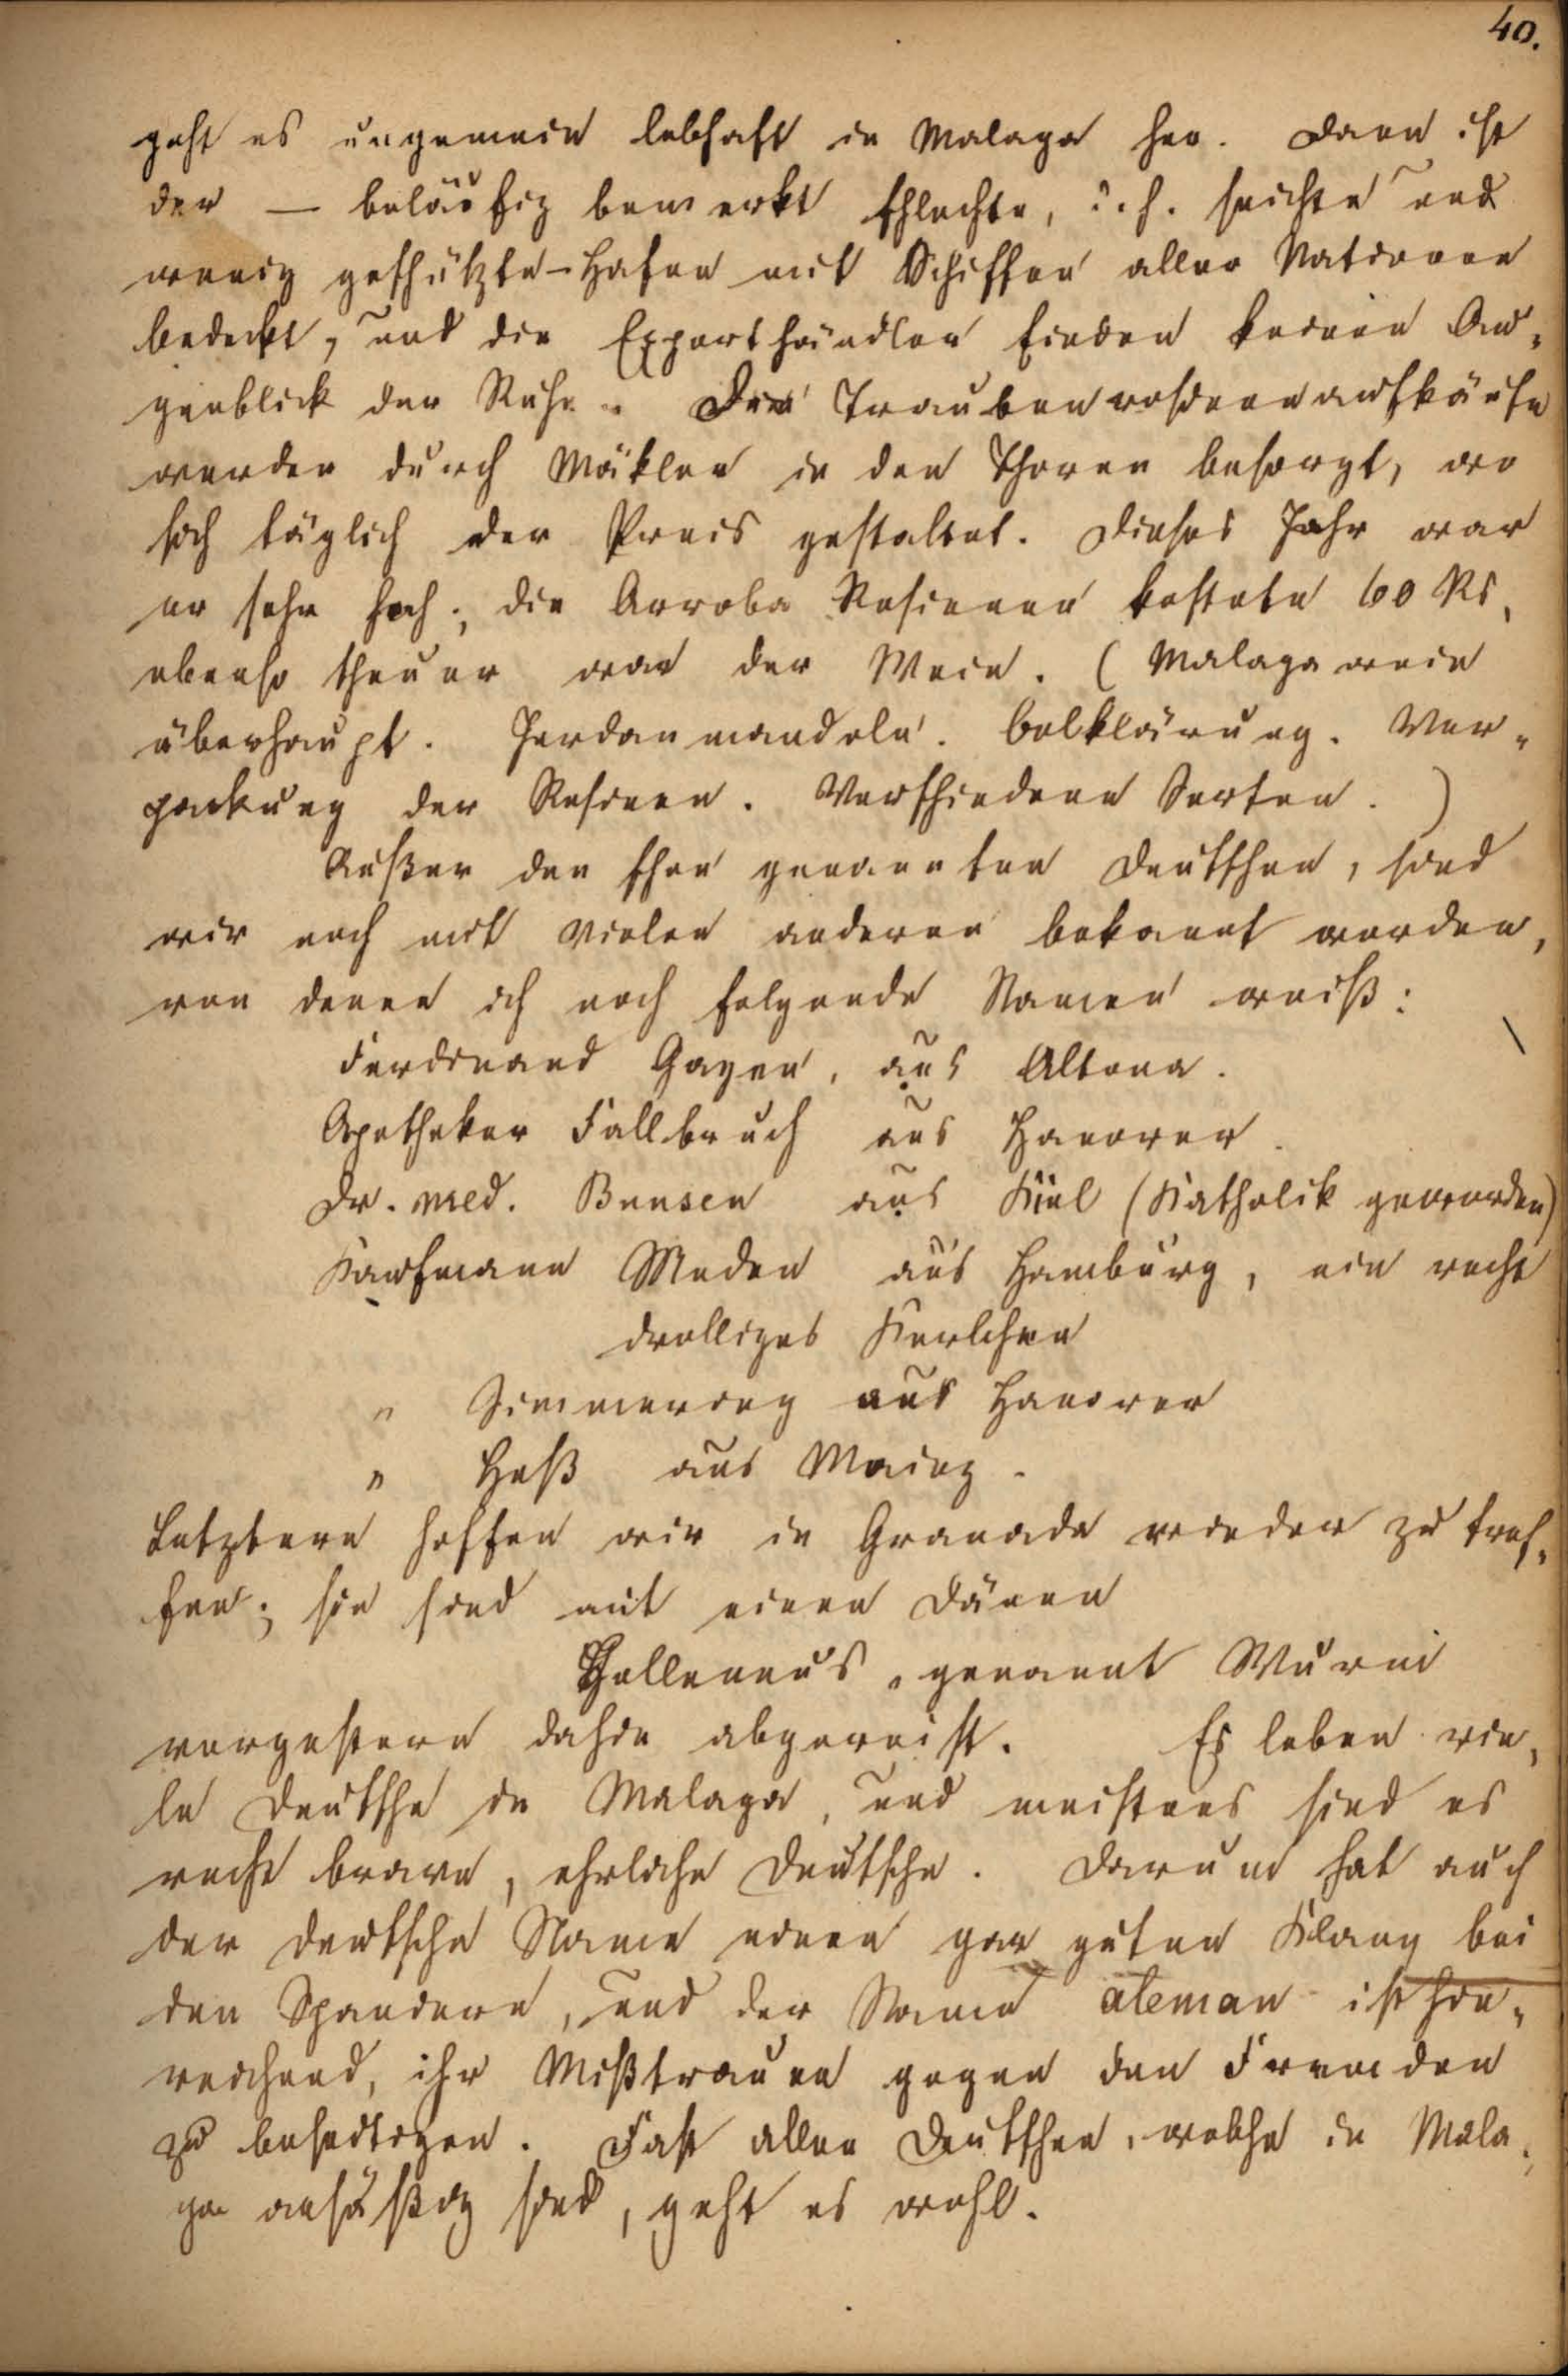 40.
geht es ungemein lebhaft in Malaga her. Dann ist
der — beläufig bemerkt schlechte, d. h. seichte und
wenig geschützte - Hafen mit Schiffen aller Nationen
bedeckt, und die Exporthändler finden keinen Au-
genblick der Ruhe. Die Traubenrosinenaufkäufe
werden durch Mäkler in den Thoren besorgt, wo
sich täglich der Preis gestaltet. Dieses Jahr war
er sehr hoch; die Arroba Rosinen kostete 60 Rs,
ebenso theuer war der Wein. (Malagawein
überhaupt. Jordanmandeln. Oelklärung. Ver-
packung der Rosinen. Verschiedene Sorten.)
Außer den schon genannten Deutschen, sind
wir noch mit vielen anderen bekannt worden,
von denen ich noch folgende Namen weiß:
Ferdinand Gayen, aus Altona.
Apotheker Fallbruch aus Hanover.
Dr. med. Bunsen aus Kiel (Katholik geworden)
Kaufmann Meden aus Hamburg, ein recht
drolliges Kerlchen
" Simmering aus Hanover
" Heß aus Mainz.
Letztere hoffen wir in Granada wieder zu tref-
fen; sie sind mit einem Dänen
genannt Wurm
vorgestern dahin abgereist. Es leben vie-
le Deutsche in Malaga, und meistens sind es
recht brave, ehrliche Deutsche. Darum hat auch
der deutsche Name einen gar guten Klang bei
den Spaniern, und der Name aleman ist hin-
reichend, ihr Mißtrauen gegen den Fremden
zu beseitigen. Fast allen Deutschen, welche in Mala-
ga ansäßig sind, geht es wohl.